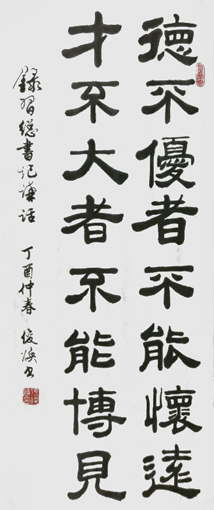 德不優者不能懷遠
才不大者不能博見
錄習總書記講話 丁酉仲春 俊煥书